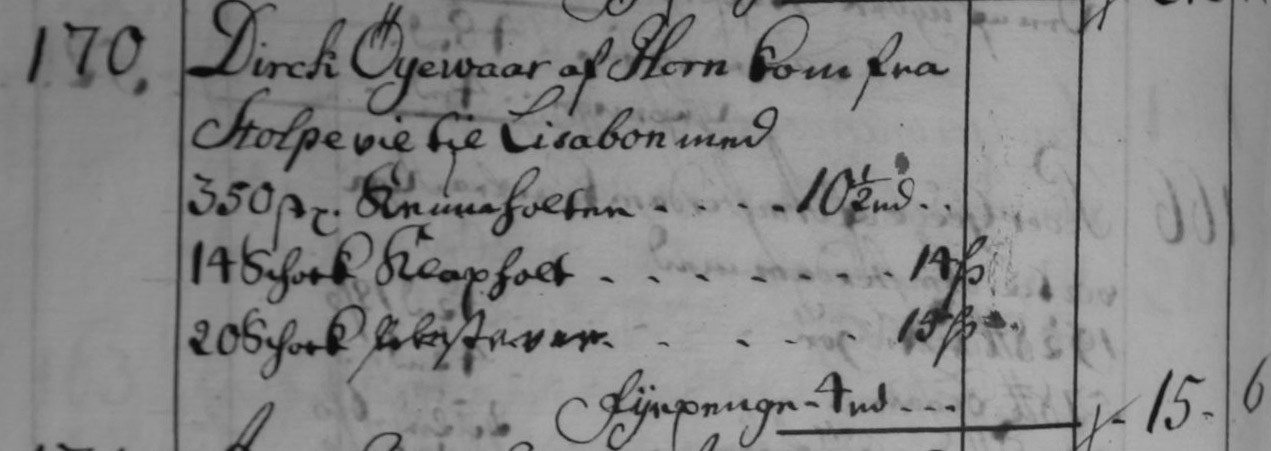 170. Dirck Öyewaar af Horn kom fra
Stolpe vie til Lisabon med
350 st. Krumholter . . . . 10 1/2 rd. . .
14 Schock Klapholt . . . . . . . 14 ß
20 Schock . . . . . 15 ß
Fijrpenge - 4 rd - - - 15 - 6